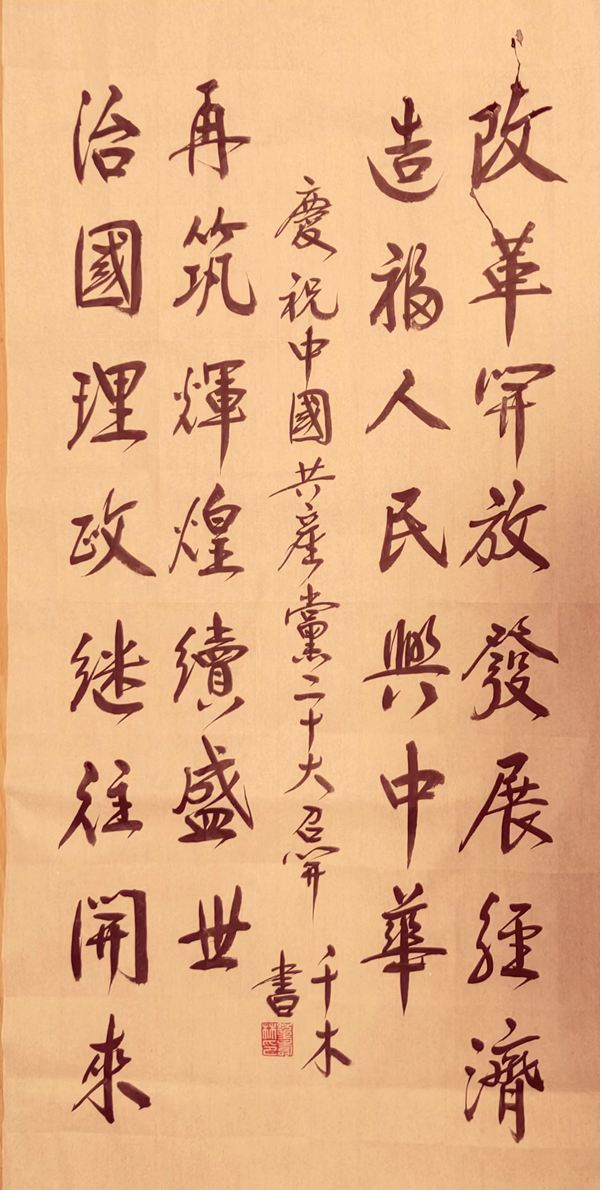 改革開放發展經濟
造福人民興中華
慶祝中國共產黨二十大召開
千木
書
再筑輝煌續盛世
治國理政继往開來